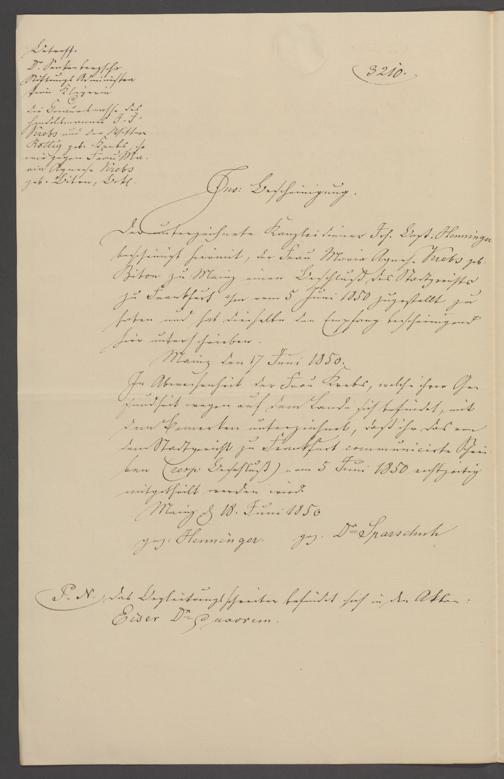 Betreff.
Dr Senkenbergsche
Stiftungs Administra
tion Klägerin
die Concursmasse des
Handelsmannes J. J.
Krebs und der Wittwe
geb. Krebs
und gegen Frau Ma
ria Agnese Krebs
geb. Biton, Bekl.
3210.
Ins: Bescheinigung.
Der unterzeichnete Kanzleidiener Joh. Bapt. Henninger
bescheinigt hiermit, der Frau Maria Agnese Krebs geb.
Biton zu Mainz einen Beschluß des Stadtgerichts
zu Frankfurt vom 5 Juni 1850 zugestellt zu
haben und hat dieselbe den Empfang bescheinigend
hier unterschrieben.
Mainz den 17 Juni 1850.
In Abwesenheit der Frau Krebs, welche ihrer Ge
sundheit wegen auf dem Lande sich befindet, mit
dem Bemerken unterzeichnet, daß ihr das von
dem Stadtgericht zu Frankfurt communicirte Schrei
ben (resp. Beschluß) vom 5 Juni 1850 rechtzeitig
mitgetheilt werden wird.
Mainz d 18. Juni 1850
gez. Henninger. gez. Dr Sparschuh
P. N. Das Begleitungsschreiben befindet sich in den Akten.
Dr uxorem.